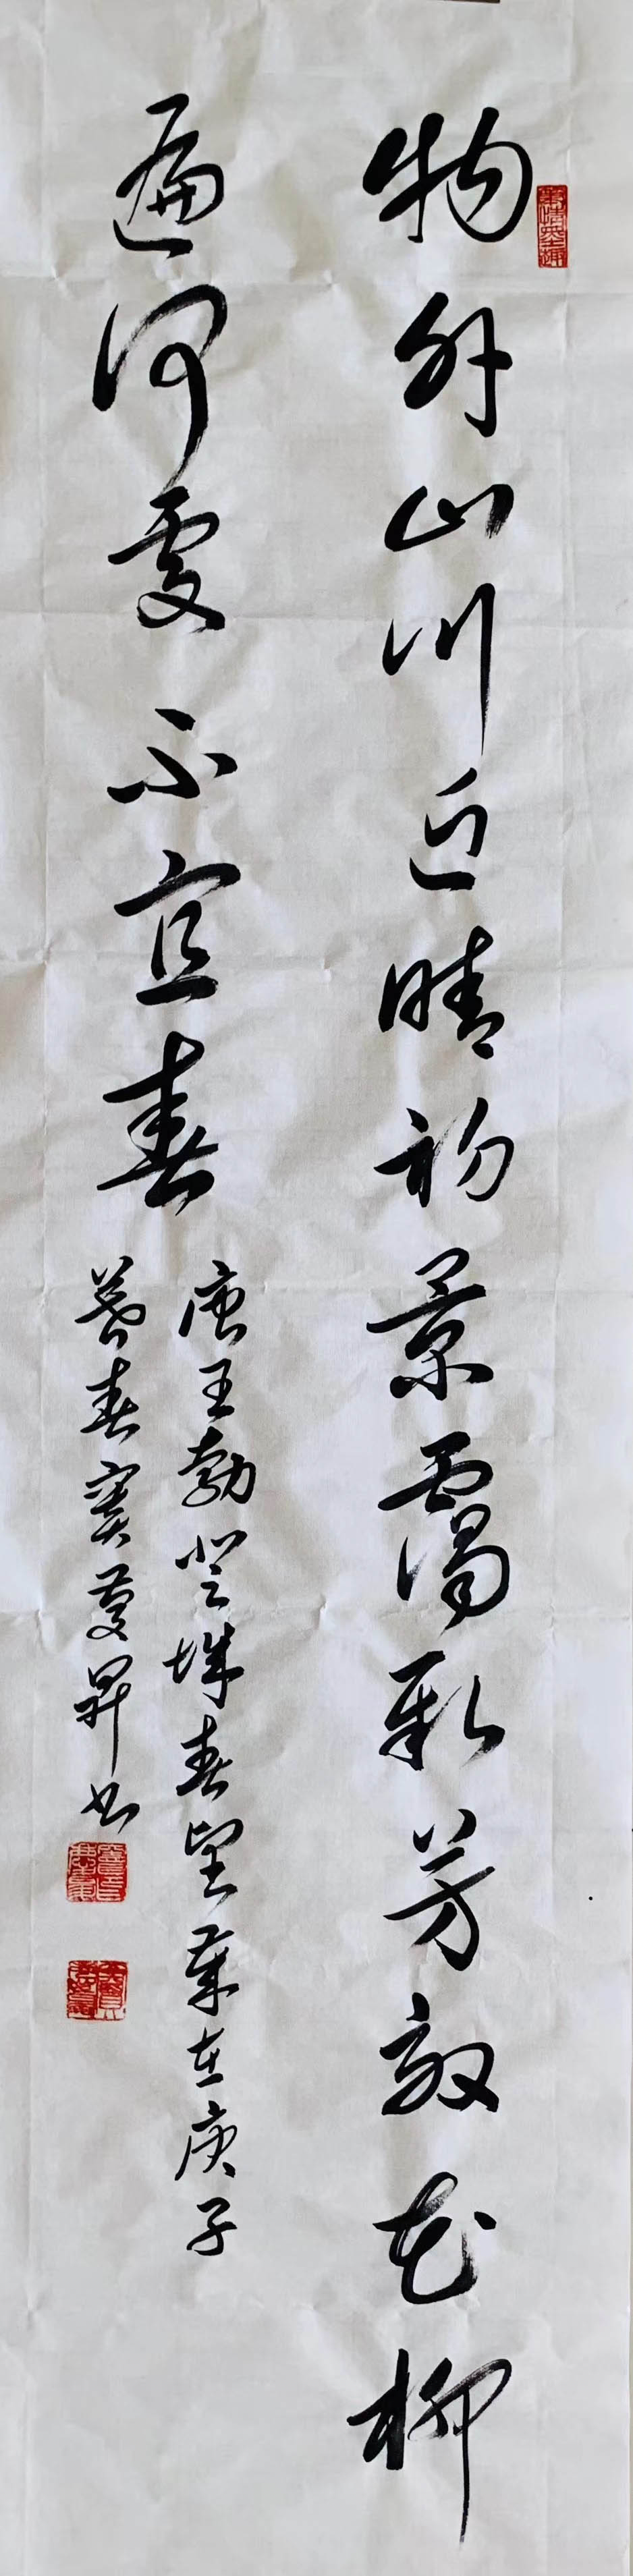 物外山川近晴初景靄新芳郊花柳
遍何處不宜春
唐王勃登城春望歲在庚子
暮春竇昇书